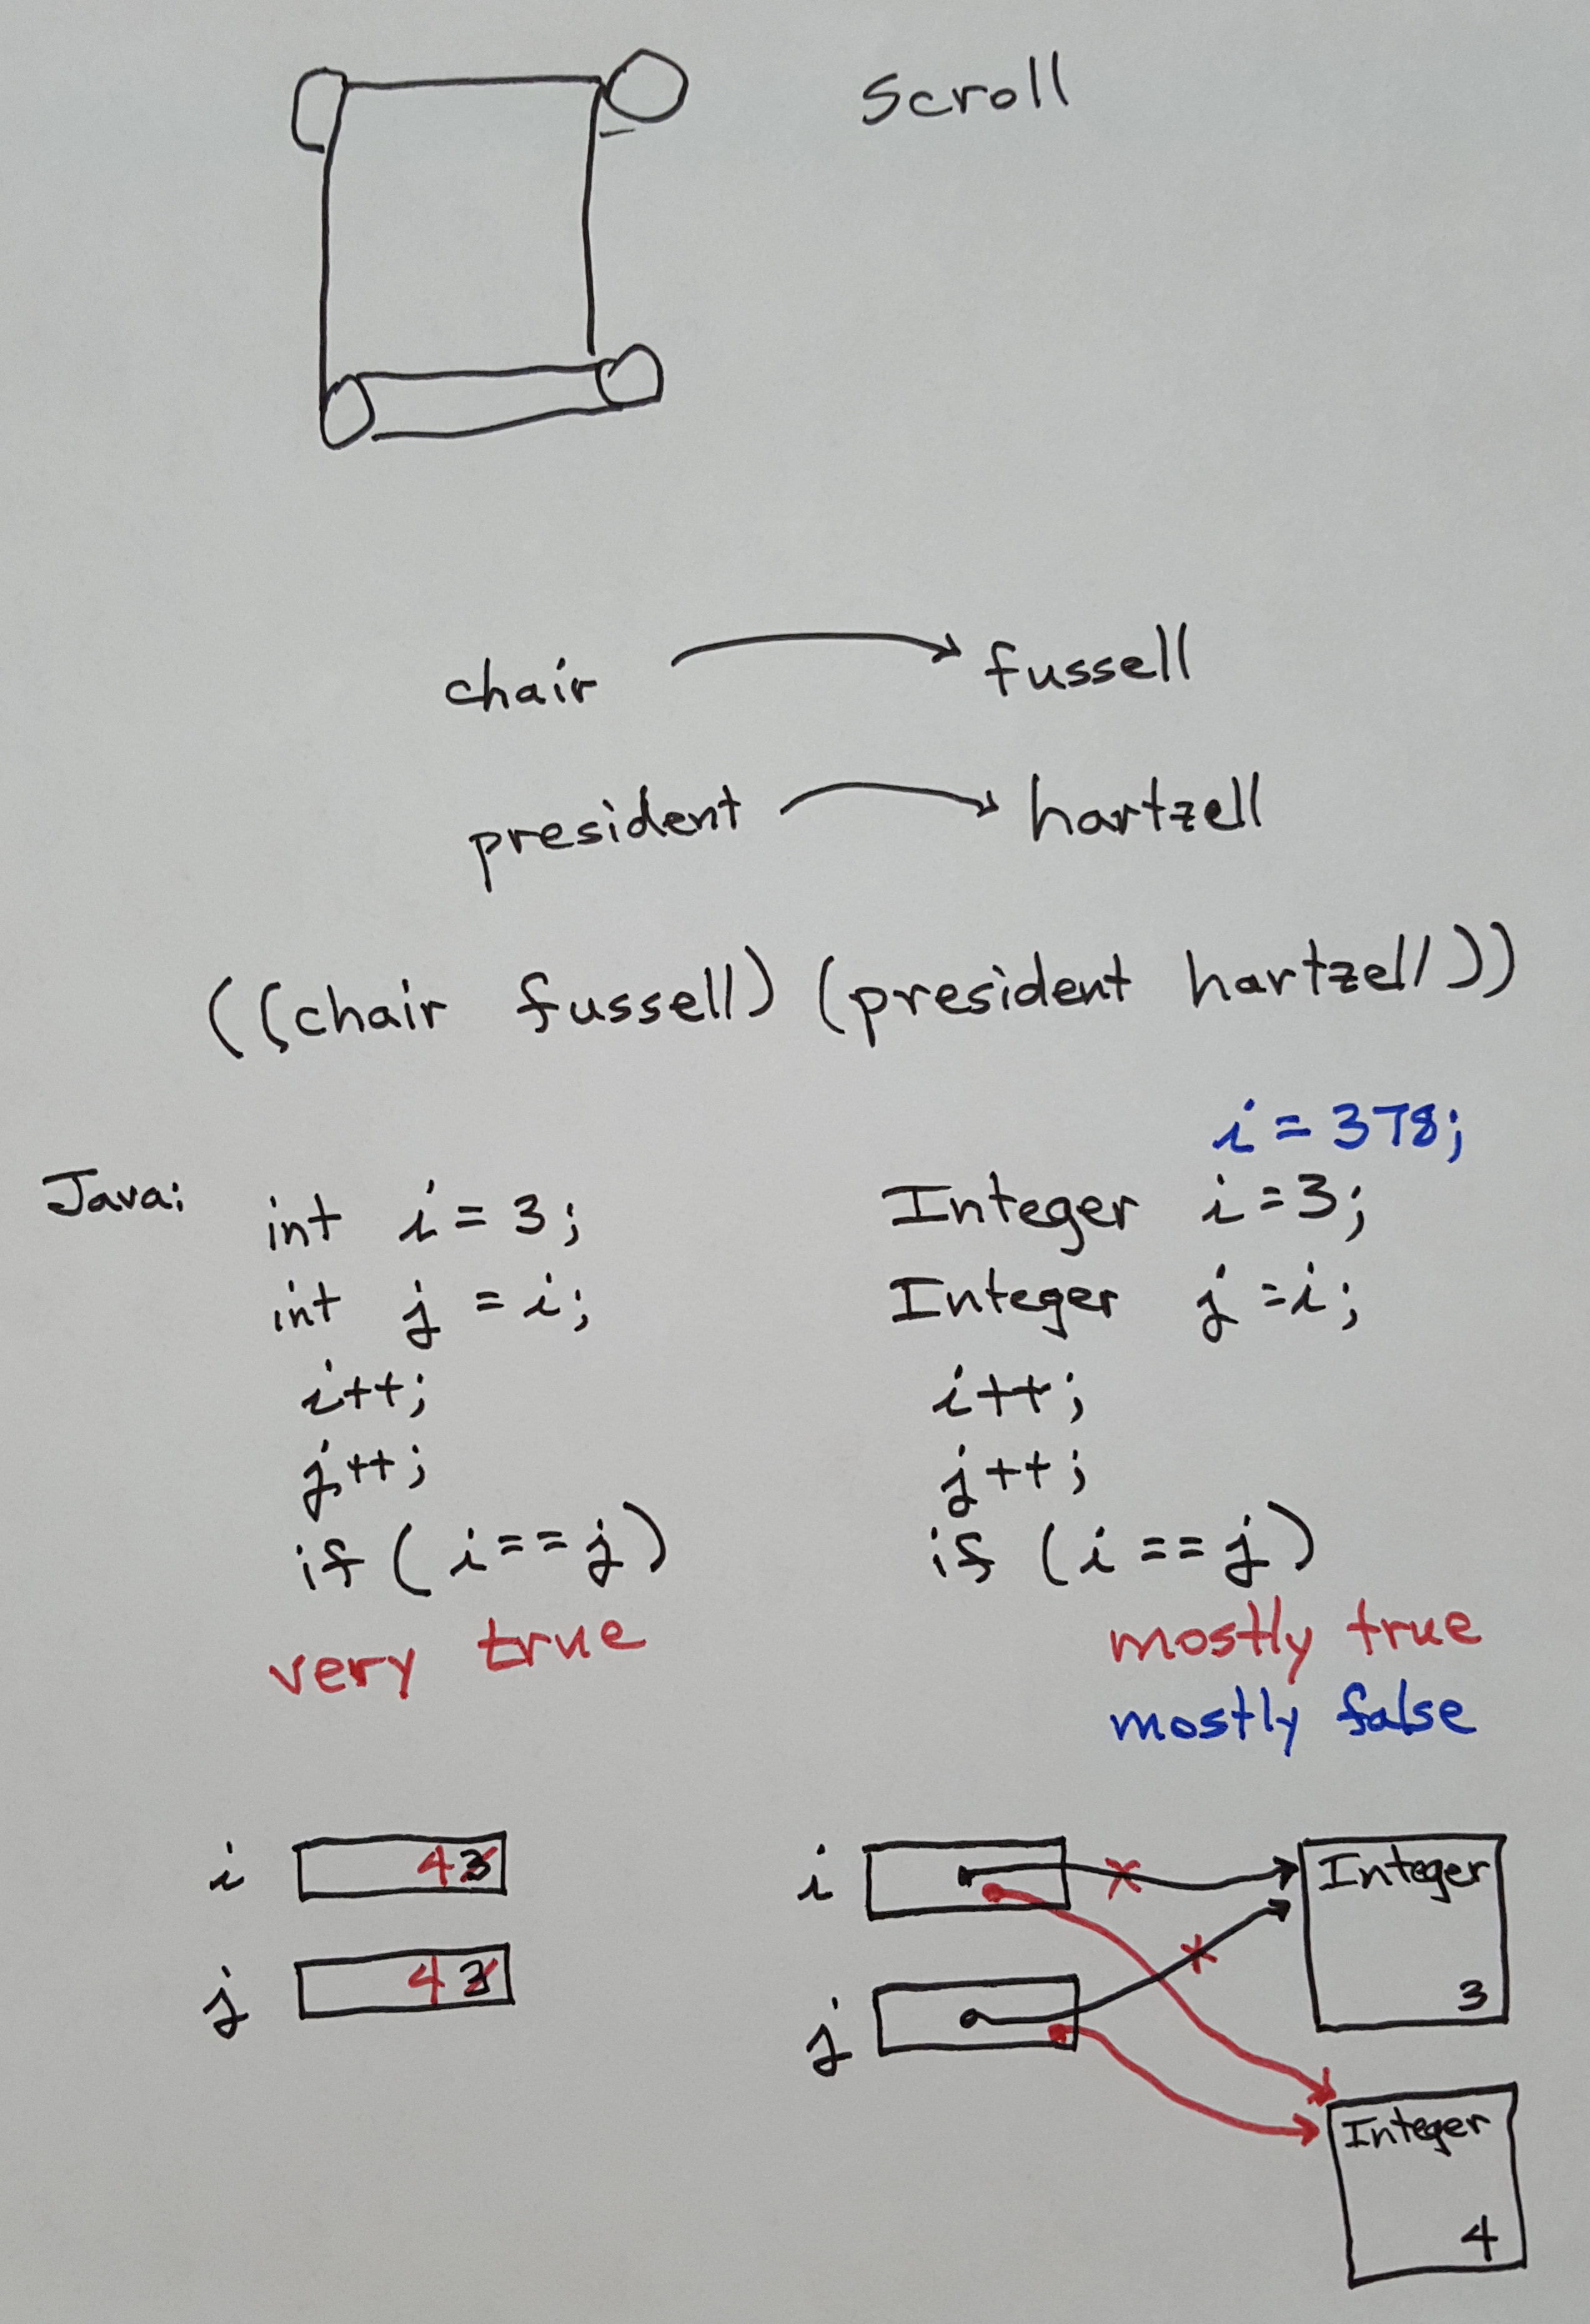 Scroll
chair fussell
president hartzell
((chair fussell) (president hartzell))
i = 378;
Java: int i = 3; Integer i = 3;
int j = i; Integer j = i;
i++; i++;
j++; j++;
if (i == j) if (i == j)
very true mostly true
mostly false
i 4 3 i Integer
3
j 4 3 j
Integer
4